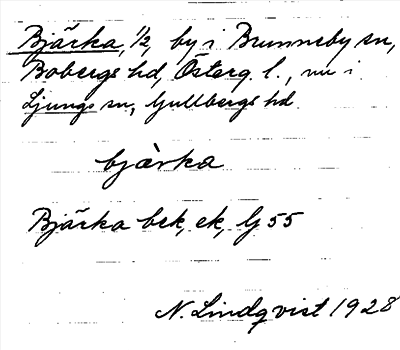 Bjärka, 1/2, by i Brunneby sn,
Bobergs hd, Österg. l., nu i
Ljungs sn, Gullbergs hd.
bjàrka
Bjärka bek, ek, Gj 55
N. Lindqvist 1928